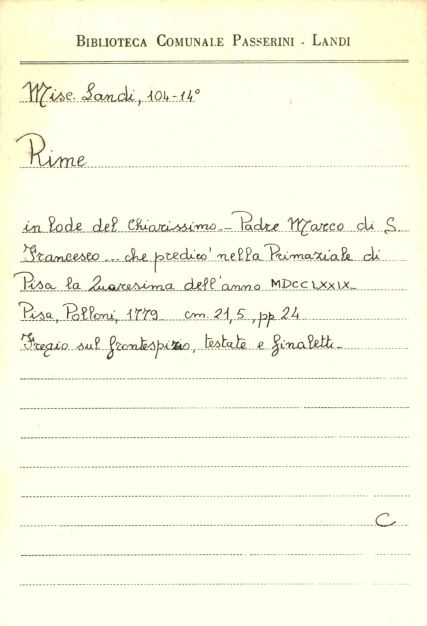 BIBLIOTECA COMUNALE PASSERINI - LANDI
Misc. Landi, 104-14°
Rime
in lode del Chiarissimo... Padre Marco di S.
Francesco... che predicò nella Primaziale di
Pisa la Quaresima dell'anno MDCCLXXIX.
Pisa, Polloni, 1779 cm. 21,5, pp 24
Fregio sul frontespizio, testate e finaletti.
C